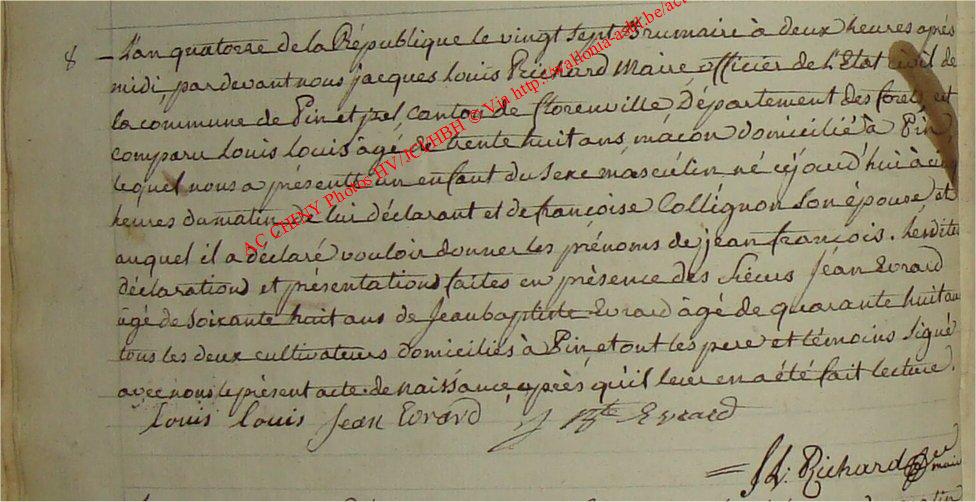 8 – L'an quatorze de la République le vingt sept Brumaire à deux heures après
midi, pardevant nous jacques Louis Richard Maire officier de l'Etat Civil de
la commune de Pin et izel Canton de florenville Département des forets, est
comparu Louis Louis agé de trente huit ans, maçon domicilié à Pin,
lequel nous a présenté un enfant du sexe masculin né cejourd'hui à cinq
heures du matin de lui déclarant et de françoise Collignon son épouse, et
auquel il a déclaré vouloir donner les prénoms de jean françois. Lesdites
déclaration et présentation faites en présence des Siécus Jean Evrard
âgé de soixante huit ans de Jeanbaptiste Evrard âgé de quarante huit ans
tous les deux cultivateurs domiciliés à Pin, et ont les pere et témoins signé
avec nous le présent acte de naissance après qu'il leur en a été fait lecture.
Louis Louis Jean Evrard J Bte Evrard
JL: Richard maire
AC CHINY Photos HV/JCl/HBH © Via http://wallonia-asbl.be/ac